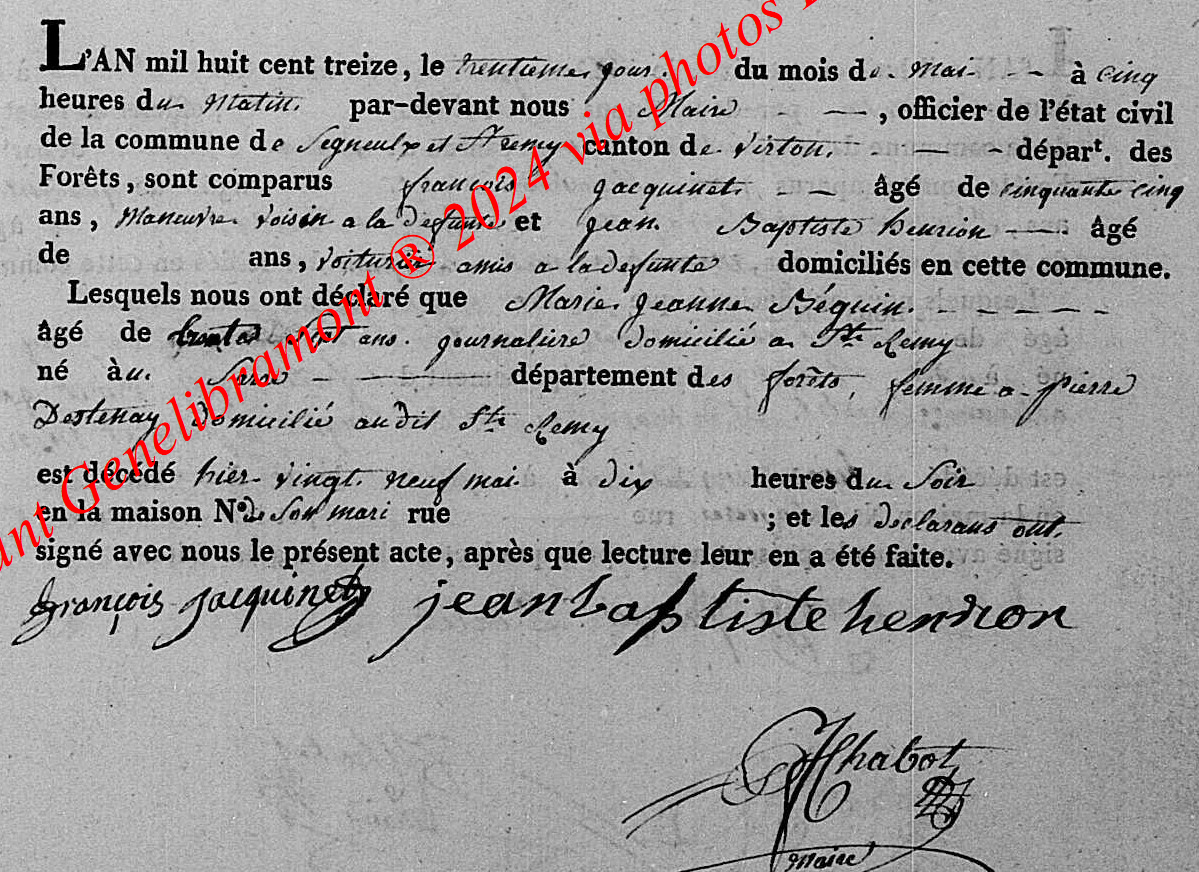 L'AN mil huit cent treize, le trentieme jour. du mois de Mai - - à cinq
heures du Matin. par-devant nous Maire - —, officier de l'état civil
de la commune de Signeulx et St remy canton de Virton. - — - départ. des
Forêts, sont comparus françois Jacquinet. - âgé de cinquante cinq
ans, Maneuvre voisin a la defunte et jean Baptiste henrion — - âgé
de ans, voiturier amis a la defunte domiciliés en cette commune.
Lesquels nous ont déclaré que Marie jeanne Béguin. - - - - -
âgé de trente sept ans. journaliere domicilié a Ste Remy
né àu. - — département des forêts, femme a pierre
Destenay domicilié au dit Ste Remy
est décédé hier vingt neuf mai à dix heures du Soir
en la maison N° de Son mari rue ; et les declarans ont
signé avec nous le présent acte, après que lecture leur en a été faite.
françois jacquinet jean baptiste henrion
Chabot
Maire
ant Genelibramont ® 2024 via photos